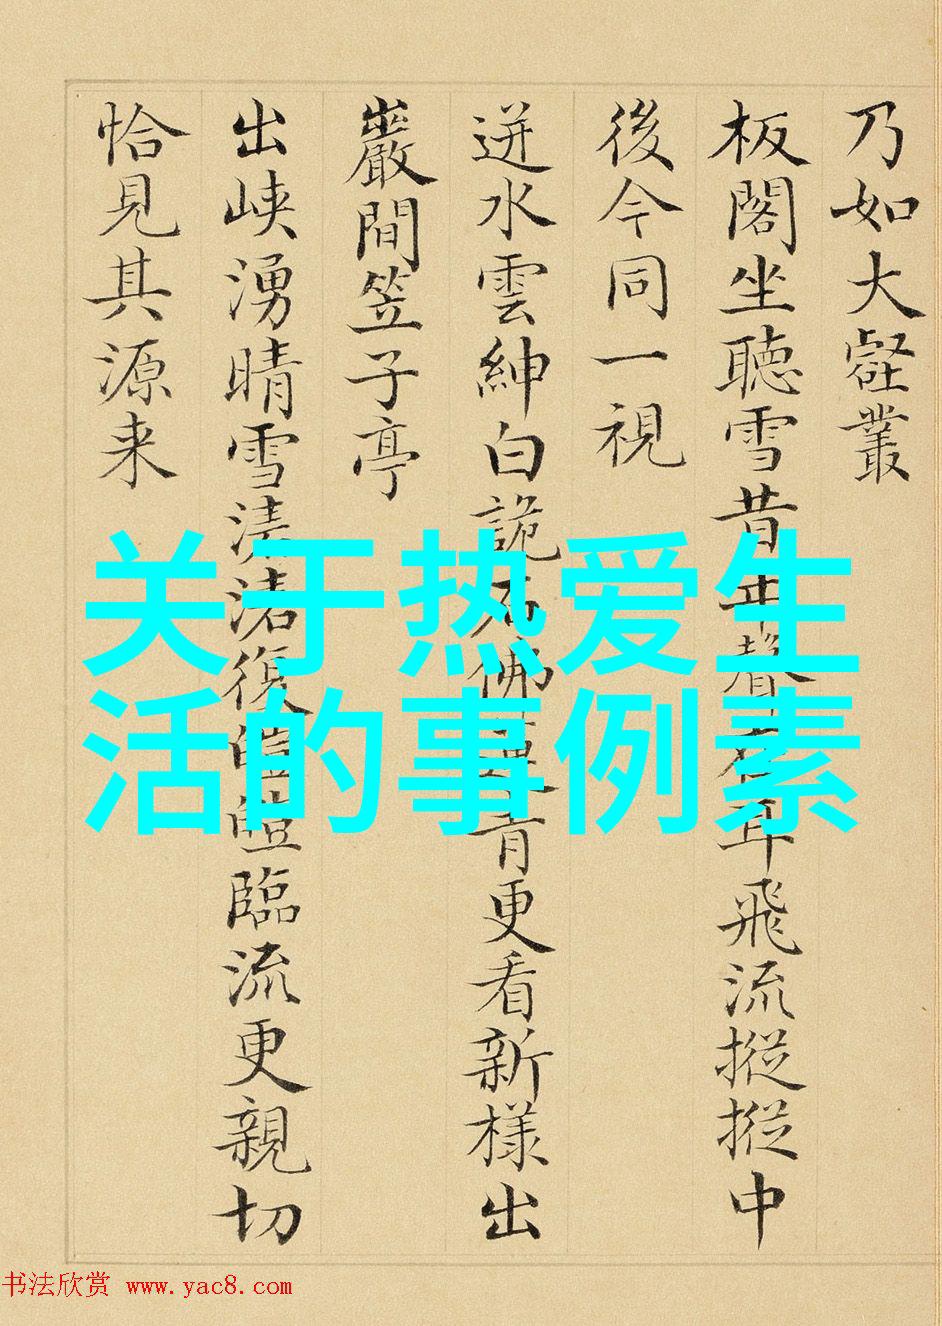 乃如大壑叢
板閣坐聽雪昔年聲在耳飛流摐摐中
後今同一視
迸水雲紳白詭石佛更看新樣出
巖間笠子亭
出峽湧晴雪渚復臨流更親切
恰見其源来
关于热爱生
活的事例素
书法欣赏 www.yac8.com